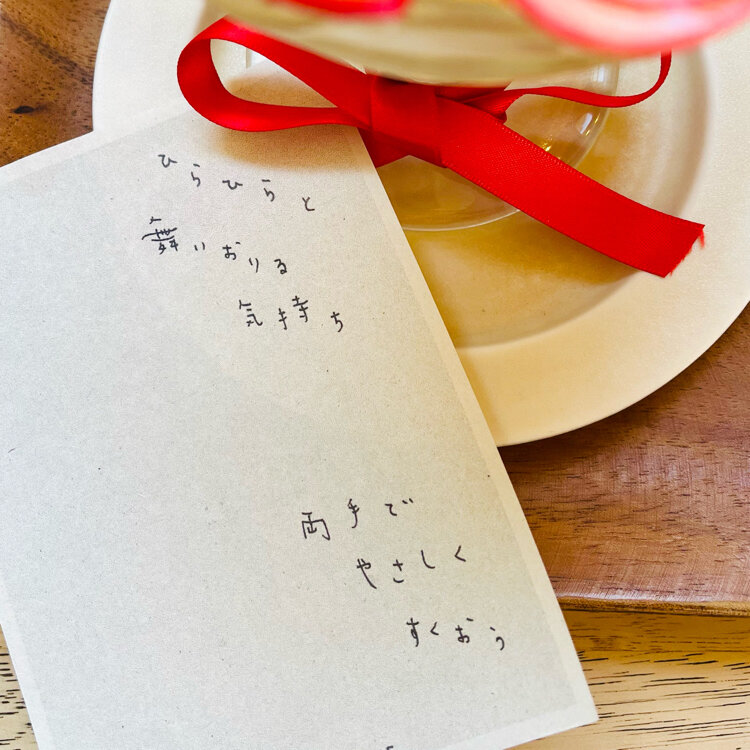 ひらひらと
舞いおりる
気持ち
両手で
やさしく
すくおう